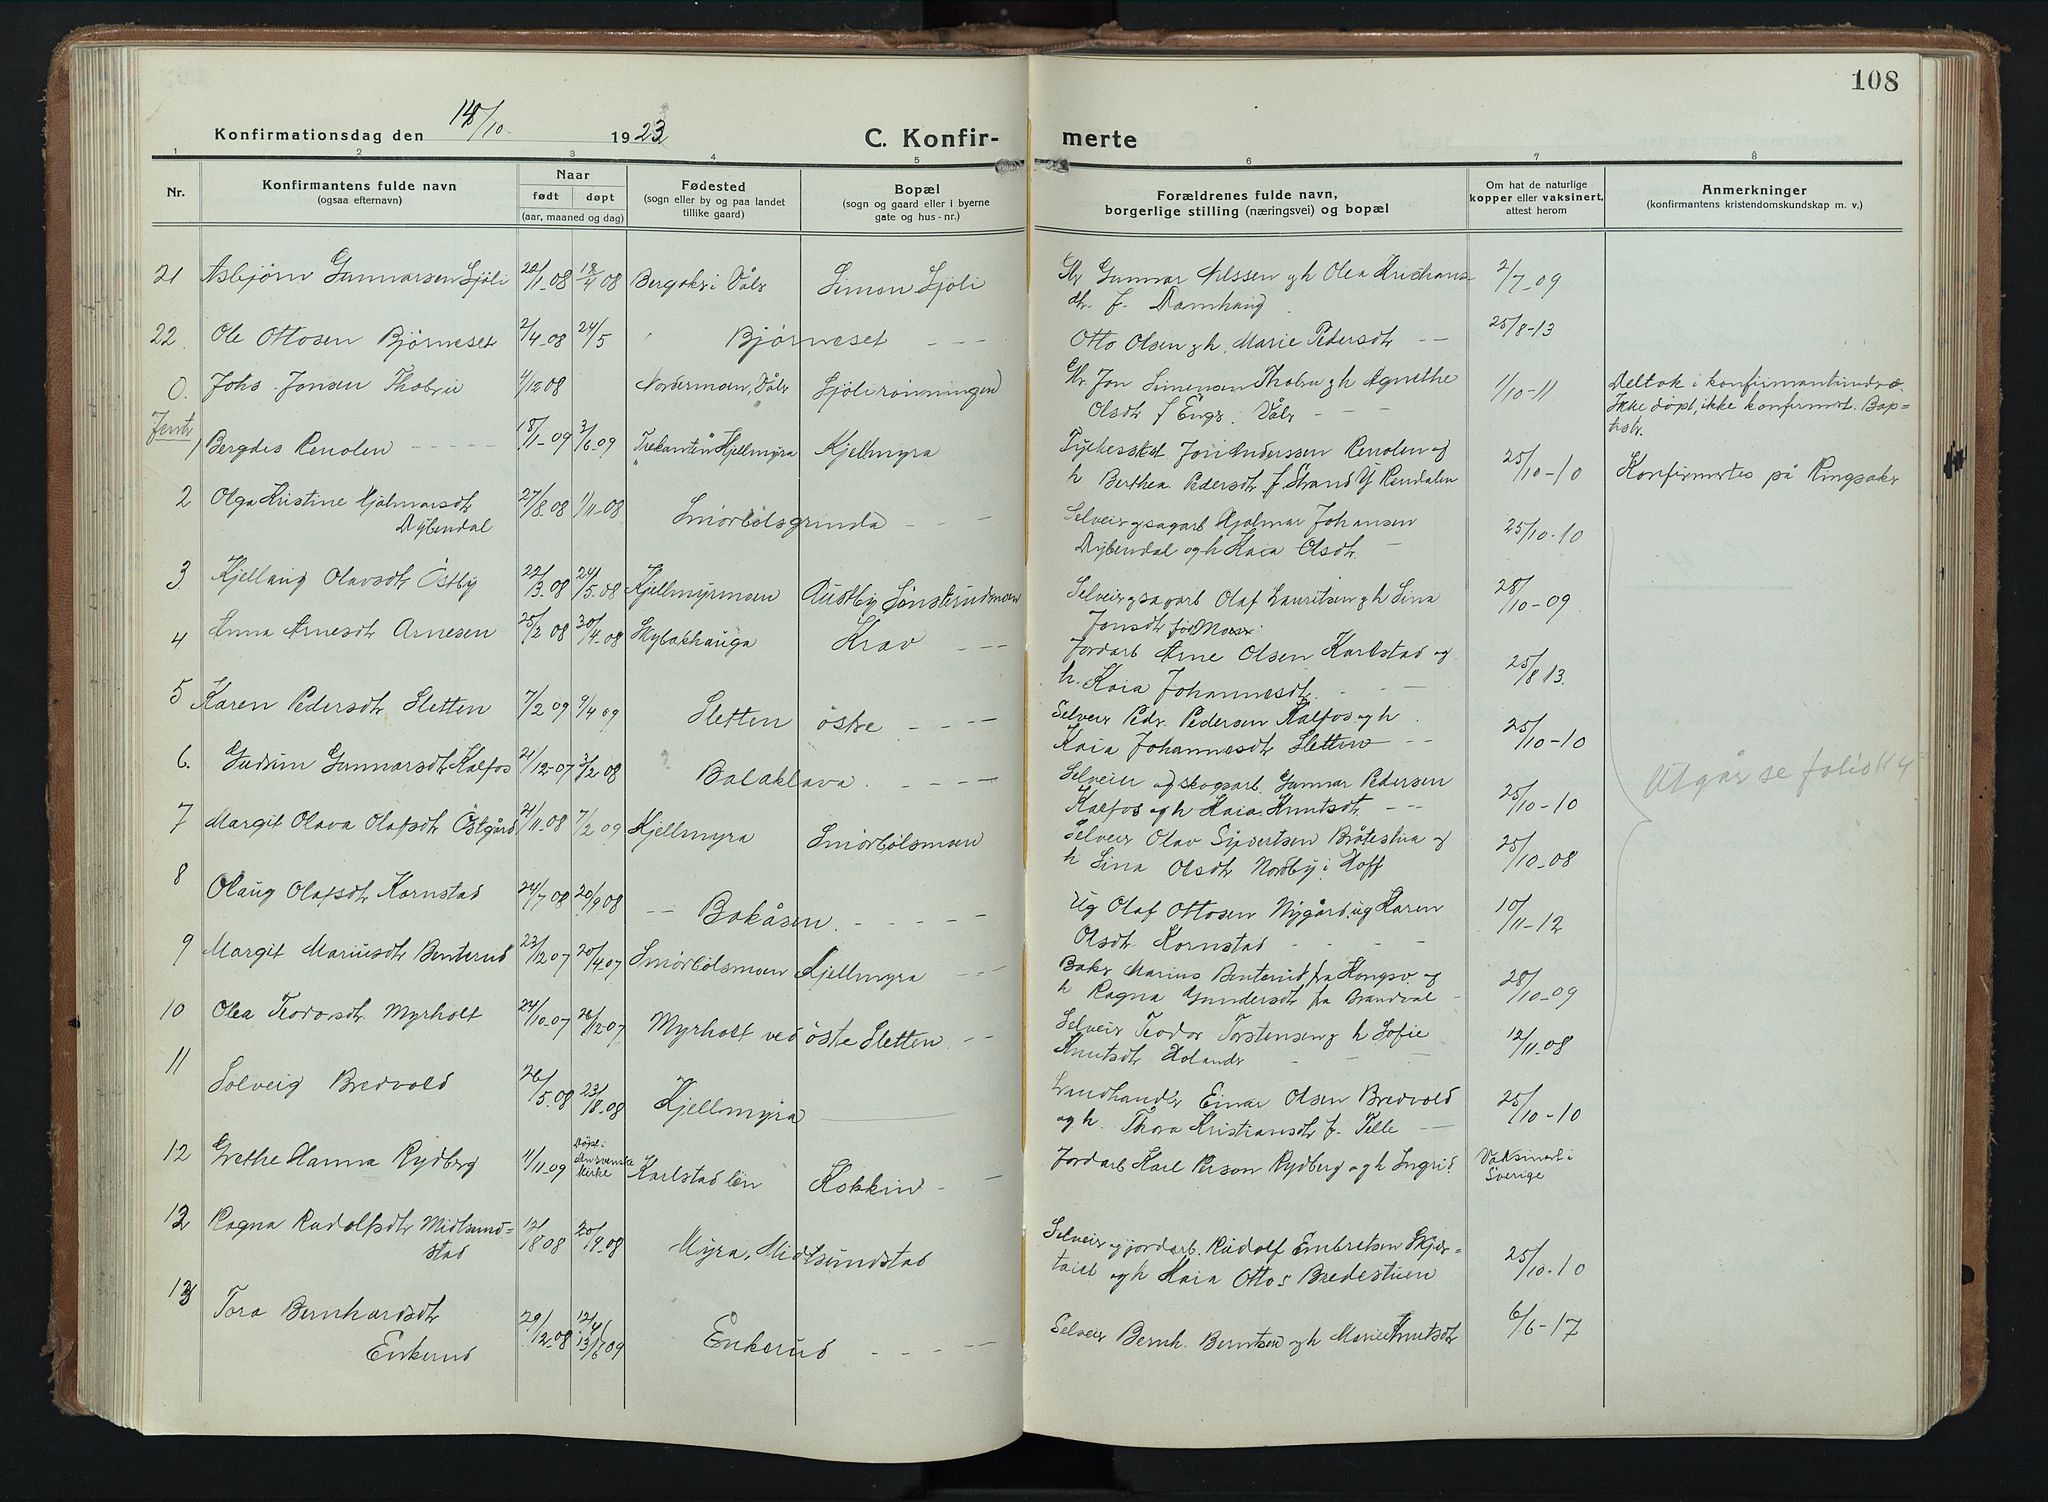 108
Konfirmationsdag den 14/10 1923
C. Konfir- merte
1 2 3 4 5 6 7 8
Nr.
Konfirmantens fulde navn
(ogsaa efternavn)
Naar
født døpt
(aar, maaned og dag)
Fødested
(sogn eller by og paa landet
tillike gaard)
Bopæl
(sogn og gaard eller i byerne
gate og hus-nr.)
Forældrenes fulde navn,
borgerlige stilling (næringsvei) og bopæl
Om hat de naturlige
kopper eller vaksinert,
attest herom
Anmerkninger
(konfirmantens kristendomskundskap m. v.)
21 Asbjørn Gunnarsen Sjöli 20/1 08 18/4 08 Simon Sjöli Gunnar Nilssen og h Olea Kristians- 2/7-09
dtr. f. Damhaug
22. Ole Ottosen Bjørneset 2/4-08 24/5 Bjørneset - - - Otto Olsen og h. Marie Pedersdtr - - 25/8-13
0. Johs. Jonsen Thobru 4/12 08 Nordermoen, Våler Sjöli rönningen Jon Simensen Thobru og h Agnethe 1/10-11 Deltok i konfirmantundrv.
Olsdtr f Engr: Våler - - - Ikke döpt, ikke konfirmert. Bap-
tist.
Jenter
1 Bergdis Renolen 18/1-09 3/6-09 Trekanten Hjellmyra Kjellmyra Jon Anderssen Renolen og 25/10-10 Konfirmertes på Ringsaker
h Berthea Pedersdtr f Strand Y Rendalen
2 Olga Kristine Hjalmarsdtr 27/8-08 1/11-08 Smörbölsgrinda - - - Selveir og sagarb Hjalmar Johansen 25/10-10
Dybendal Dybendal og h Kaia Olsdtr.
3. Kjellaug Olavsdtr Östby 22/3 08 24/5-08 Kjellmyrmoen Austby Sönsterudmoen Selveir og sagarb Olaf Lauritsen og h Lina 28/10-09
Jonsdtr
4 Anna Arnesdtr Arnesen 25/2 08 30/4-08 Krav - - - Jordarb Arne Olsen Karlstad og 25/8 13.
h. Kaia Johannesdtr.
5 Karen Pedersdtr Sletten 7/2 09 9/4 09 Sletten östre - - - Selveir Pedr Pedersen Kalfos og h 25/10-10
Kaia Johannesdtr Sletten - -
6. Gudrun Gunnarsdtr Kalfos 21/12-07 3/2 08 Balaklava. - - - Selveier og skogsarb. Gunnar Pedersen 25/10-10 Utgår se folio 114
Kalfos og h Kaia Knutsdtr. - -
7 Margit Olava Olafsdtr Östgård 21/11.08 7/2 09 Kjellmyra Smörbölsmoen Selveir Olav Sivertsen Bråtestua og 25/10-08
h Lina Olsdtr Nordby i Hoff
8 Olaug Olafsdtr Kornstad 24/7 08 20/9 08 Bakåsen. - - - Ug Olaf Ottosen Nygård, ug Karen 10/11-12
Olsdtr. Kornstad - - -
9 Margit Mariusdtr Benterud 23/12 07 20/4 07 Smörbölsmoen Kjellmyra - - Baker Marius Benterud fra Kongsv. og 28/10-09
h Ragna Gundersdtr fra Brandval -
10 Olea Teodorsdtr. Myrholt 24/10-07 26/12 07 Myrholt ved östre Sletten. - - Selveir Teodor Torstensen og h Sofie 12/11.08
Knutsdtr Holander - - -
11 Solveig Bredvold 26/5.08 23/18.08 Kjellmyra Landhandler Einar Olsen Bredvold 25/10-10
og h. Thora Kristiansdtr f. Pelle -
12 Grethe Hanna Rydberg 11/11-09 Döpt i den svenske kirke Karlstad len Kokkin - - Jordarb Karl Person Rydberg og h Ingrid Vaksinert i
Sverige
12 Ragna Rudolfsdtr Midtsund- 12/18 08 20/19-08 Myra, Midtsundstad Selveir og jordarb. Rudolf Embretsen Skjær- 25/10.10
stad og h Kaia Ottos Bredestuen
13 Tora Bernhardsdtr 29/12.08 13/6 09 Enkerud - - - Selveir Bernh. Berntsen og h Marie Knutsdtr 6/6-17
Enkerud